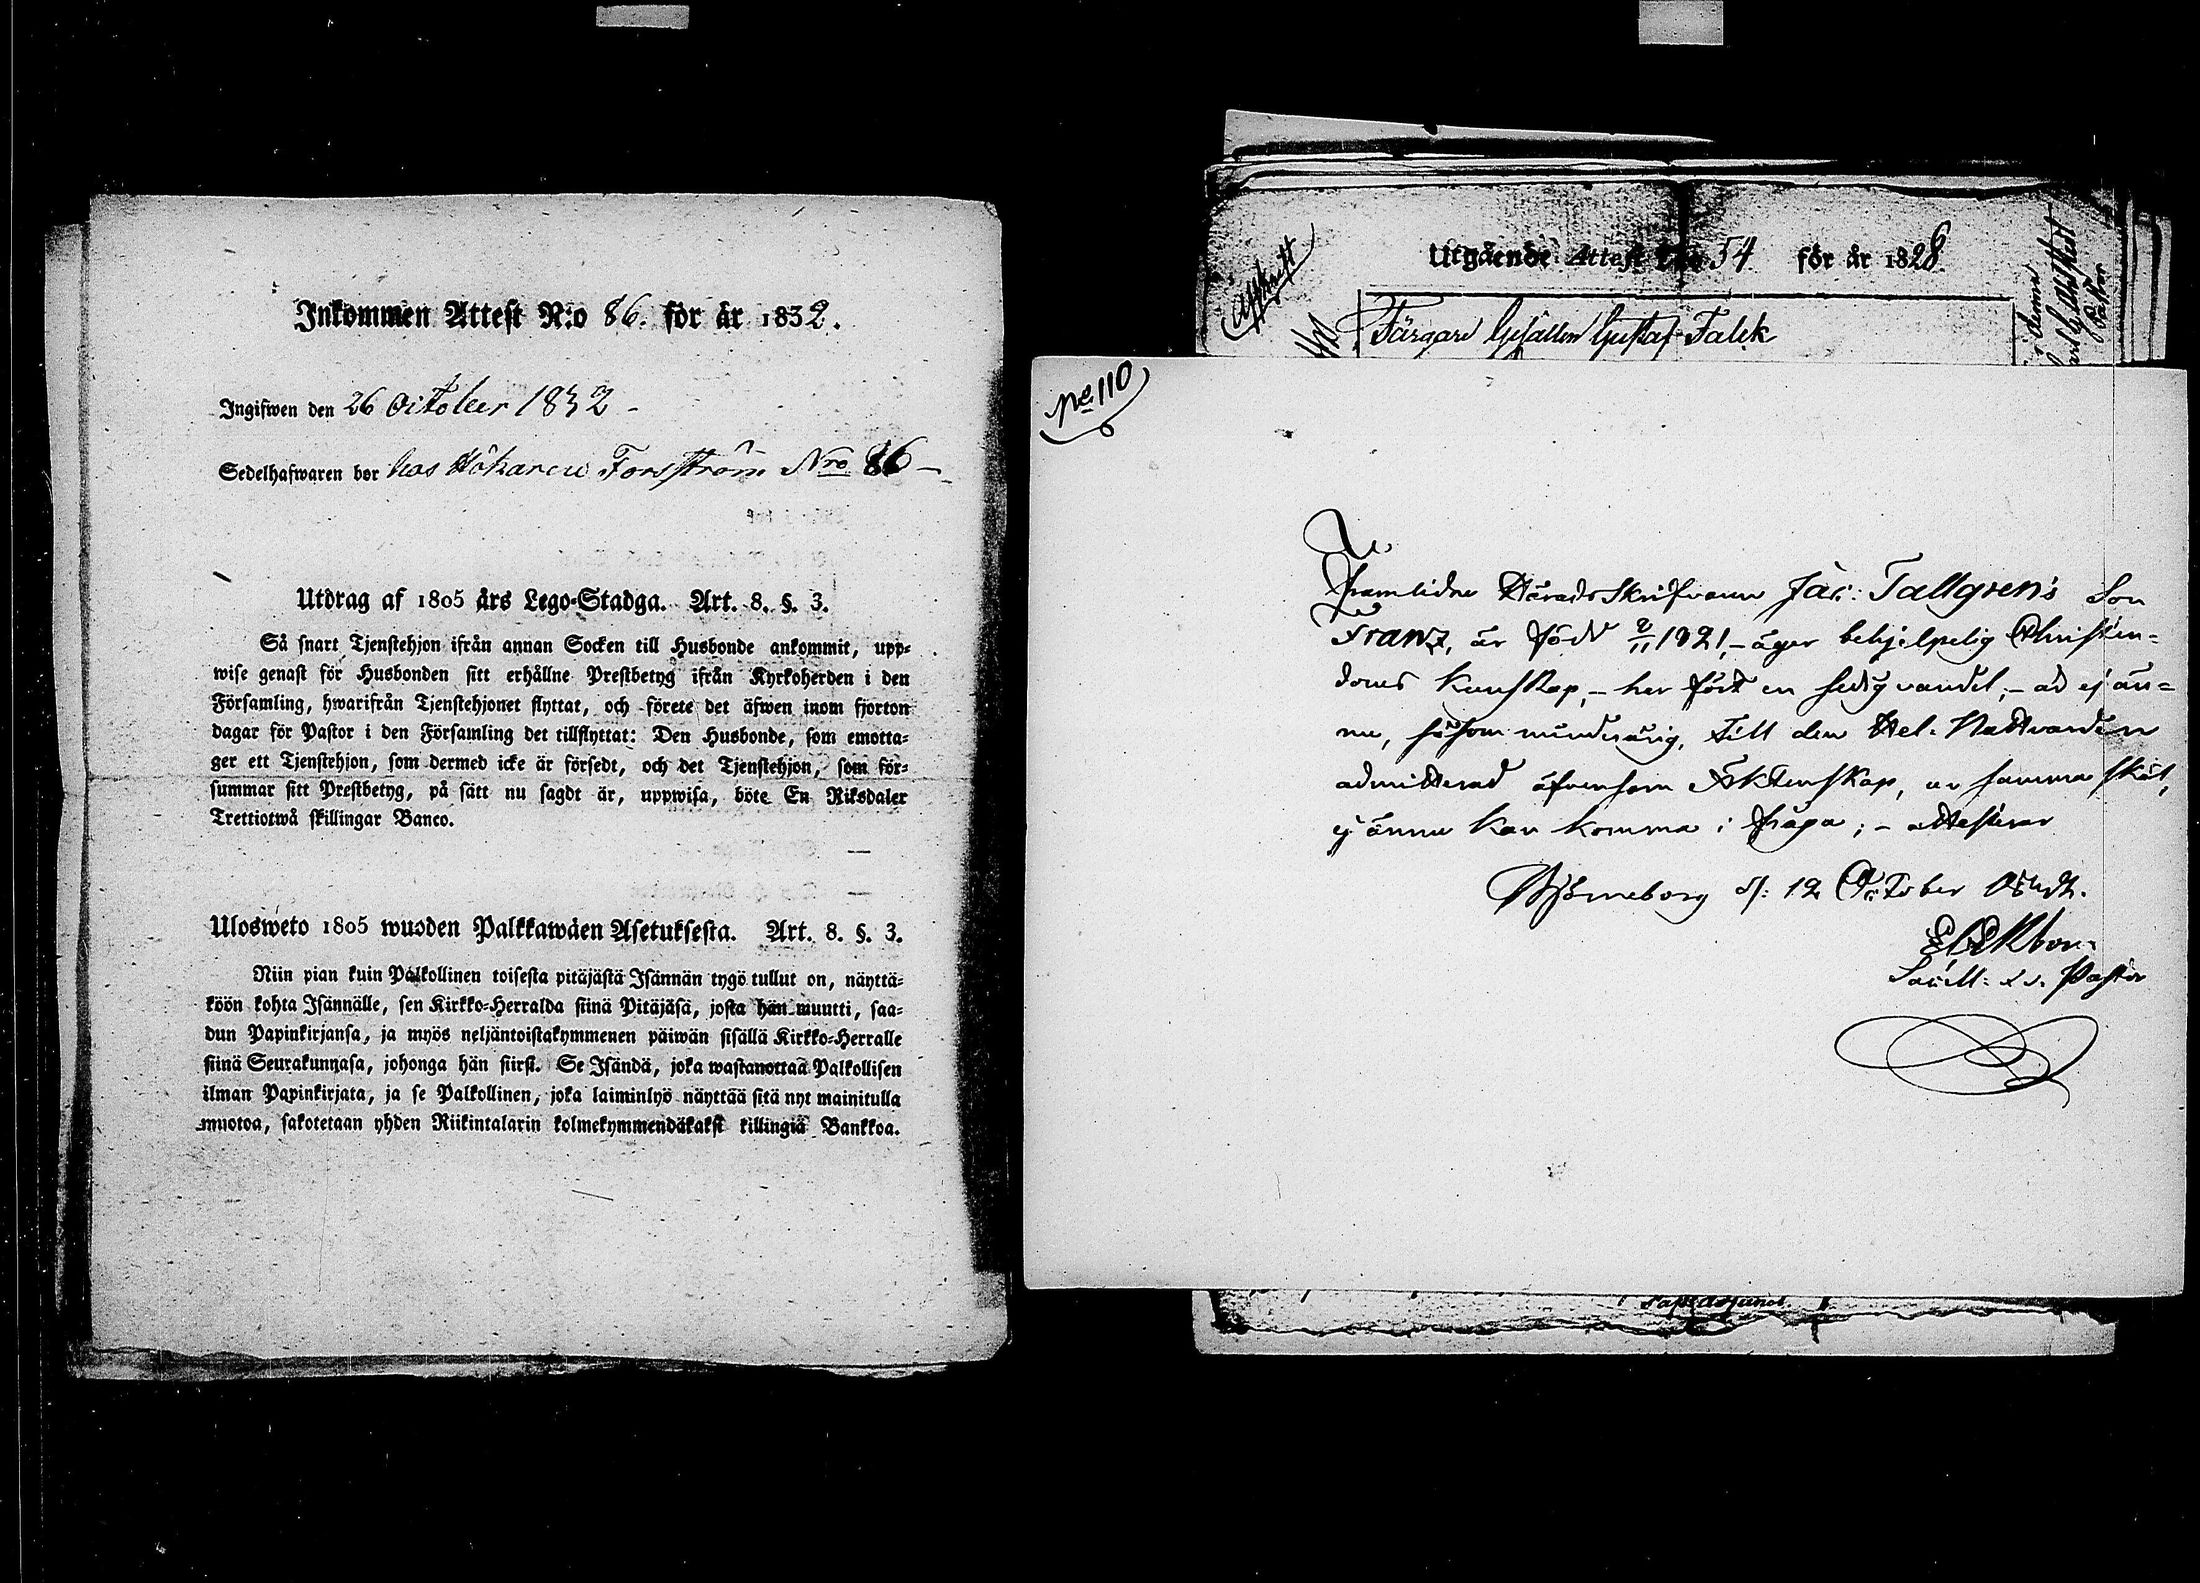 Inkommen Attest N:o 86. för år 1832.
Ingifwen den 26 October 1832 -
Sedelhafwaren bor hos Hökaren Forsström Nro 86 -
Utdrag af 1805 års Lego-Stadga. Art. 8. §. 3.
Så snart Tjenstehjon ifrån annan Socken till Husbonde ankommit, upp-
wise genast för Husbonden sitt erhållne Prestbetyg ifrån Kyrkoherden i den
Församling, hwarifrån Tjenstehjonet flyttat, och förete det äfwen inom fjorton
dagar för Pastor i den Församling det tillflyttat: Den Husbonde, som emotta-
ger ett Tjenstehjon, som dermed icke är försedt, och det Tjenstehjon, som för-
summar sitt Prestbetyg, på sätt nu sagdt är, uppwisa, böte En Riksdaler
Trettiotwå skillingar Banco.
Ulosweto 1805 wuoden Palkkawäen Asetuksesta. Art. 8. §. 3.
Niin pian kuin Palkollinen toisesta pitäjästä Isännän tygö tullut on, näyttä-
köön kohta Isännälle, sen Kirkko-Herralda siinä Pitäjäsä, josta hän muutti, saa-
dun Papinkirjansa, ja myös neljäntoistakymmenen päiwän sisällä Kirkko-Herralle
siinä Seurakunnasa, johonga hän siirsi. Se Isändä, joka wastanottaa Palkollisen
ilman Papinkirjata, ja se Palkollinen, joka laiminlyö näyttää sitä nyt mainitulla
muotoa, sakotetaan yhden Riikintalarin kolmekymmendäkaksi killingiä Bankkoa.
Afskrift
Utgående Attest N:o 54 för år 1828
Färgare Gesällen Gustaf Falck
No 110
Framlidne Härads Skrifvaren Jac: Tallgrens Son
Franz, är född 2/11 1821, - äger behjelpelig Christen-
doms kunskap, - har fört en sedig vandel, - är ej än-
nu, såsom minderårig, till den Hel. Nattvarden
admitterad äfvensom Äktenskap, av samma skäl,
ej ännu kan komma i fråga; - attesterar
Björneborg d: 12 October
Pastor